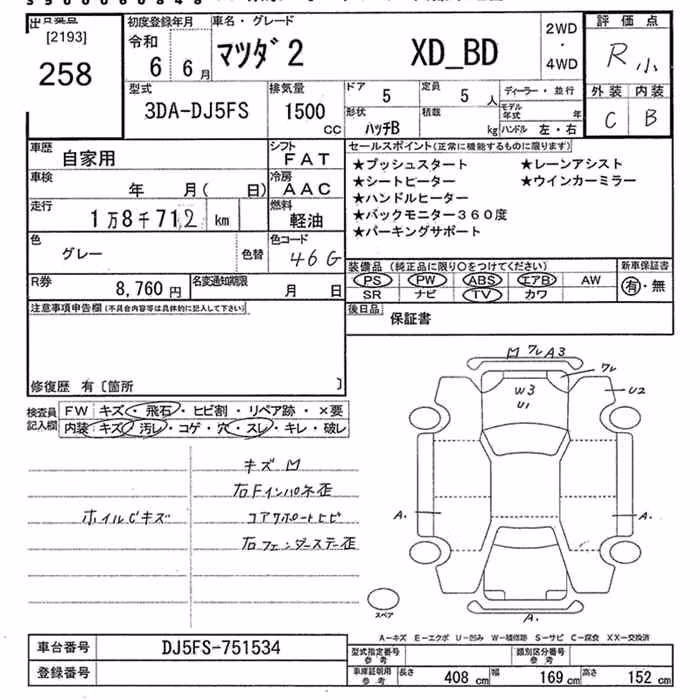 [2193]
258
初度登録年月
令和
6 6月
車名・グレード
マツダ2 XD_BD
2WD
・
4WD
評価点
R小
外装 内装
C B
型式
3DA-DJ5FS
排気量
1500
cc
ドア
5
定員
5人
ディーラー・並行
形状
ハッチB
積載
kg
モデル年式 年
ハンドル 左・右
車歴
自家用
シフト
FAT
車検
年 月( 日)
冷房
AAC
走行
1万8千712 km
燃料
軽油
色
グレー
色替
色コード
46G
R券
8,760円
名変通知期限
月 日
セールスポイント(正常に機能するものに限ります)
★プッシュスタート ★レーンアシスト
★シートヒーター ★ウインカーミラー
★ハンドルヒーター
★バックモニター360度
★パーキングサポート
装備品(純正品に限り○をつけてください)
PS PW ABS エアB AW
SR ナビ TV カワ
新車保証書
有・無
後日品
保証書
注意事項申告欄(不具合内容等は具体的に記入して下さい)
修復歴 有〔箇所 〕
検査員
記入欄
FW キズ・飛石・ヒビ割・リペア跡・×要
内装 キズ・汚レ・コゲ・穴・スレ・キレ・破レ
キズM
右Fインパネ歪
ホイルCキズ
コアサポートヒビ
右フェンダーステー歪
M ワレ A3
ワレ
W3
U1
U2
A.
A.
A.
スペア
A―キズ E―エクボ U―凹み W―補修跡 S―サビ C―腐食 XX―交換済
車台番号
DJ5FS-751534
登録番号
型式指定番号
参考
類別区分番号
参考
車庫証明用
参考
長さ 408 cm 幅 169 cm 高さ 152 cm